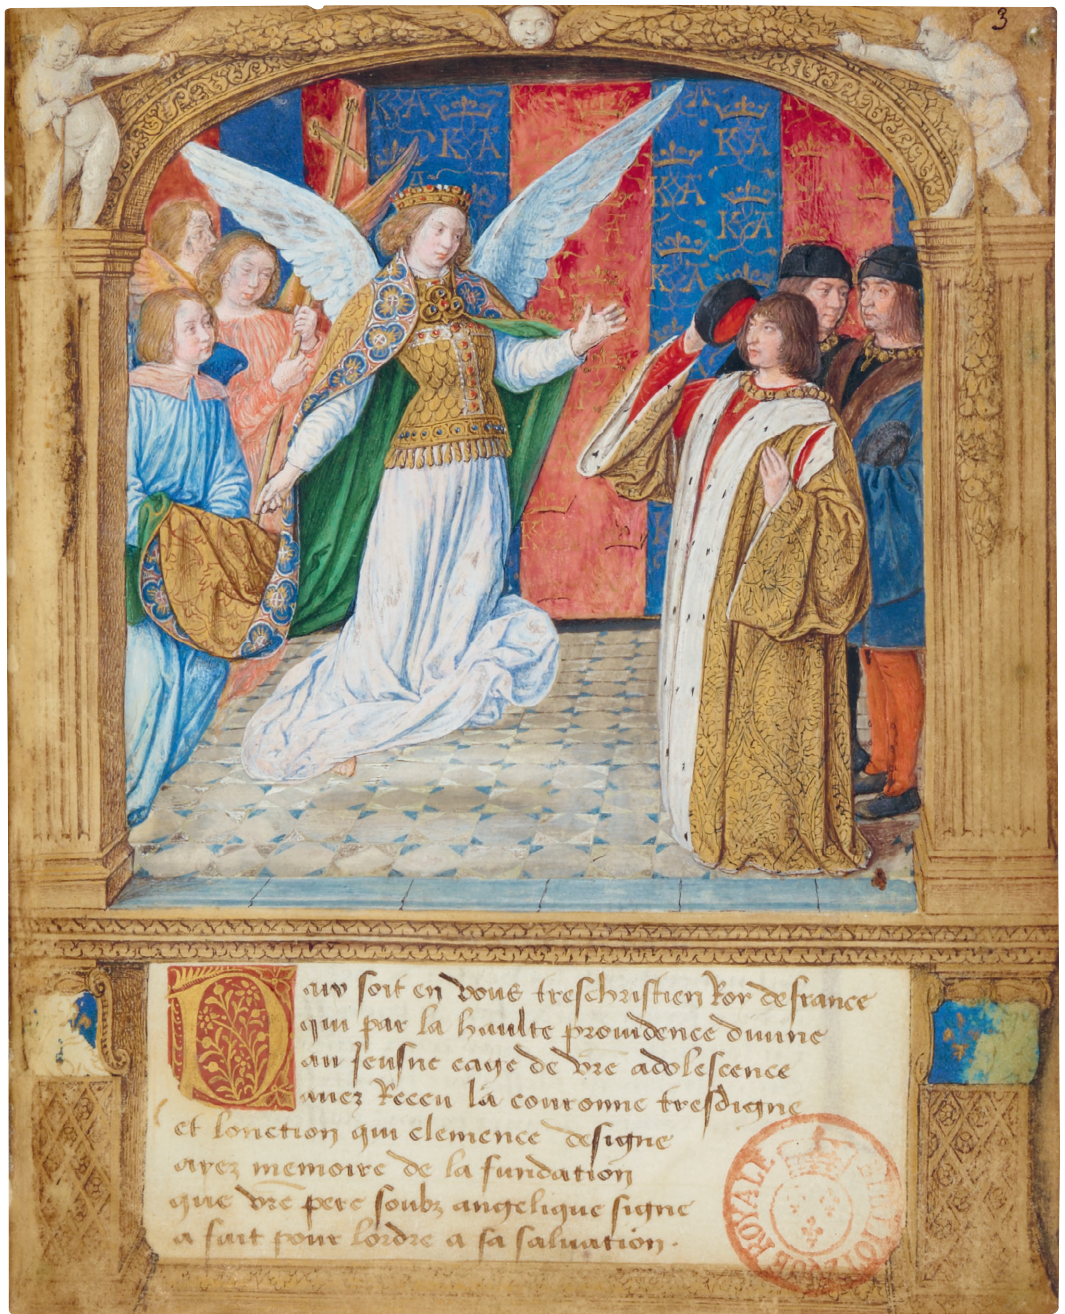 3
KA
KA
KA
KA
KA
Qui soit en vous treschristien Roy de france
qui par la haulte prouidence diuine
au Jeusne eage de vr̃e adolescence
auez Receu la couronne tresdigne
et lonction qui clemence designe
ayez memoire de la fundation
que vr̃e pere soubz angelique signe
a fait pour lordre a sa saluation.
BIBLIOTHEQUE ROYALE